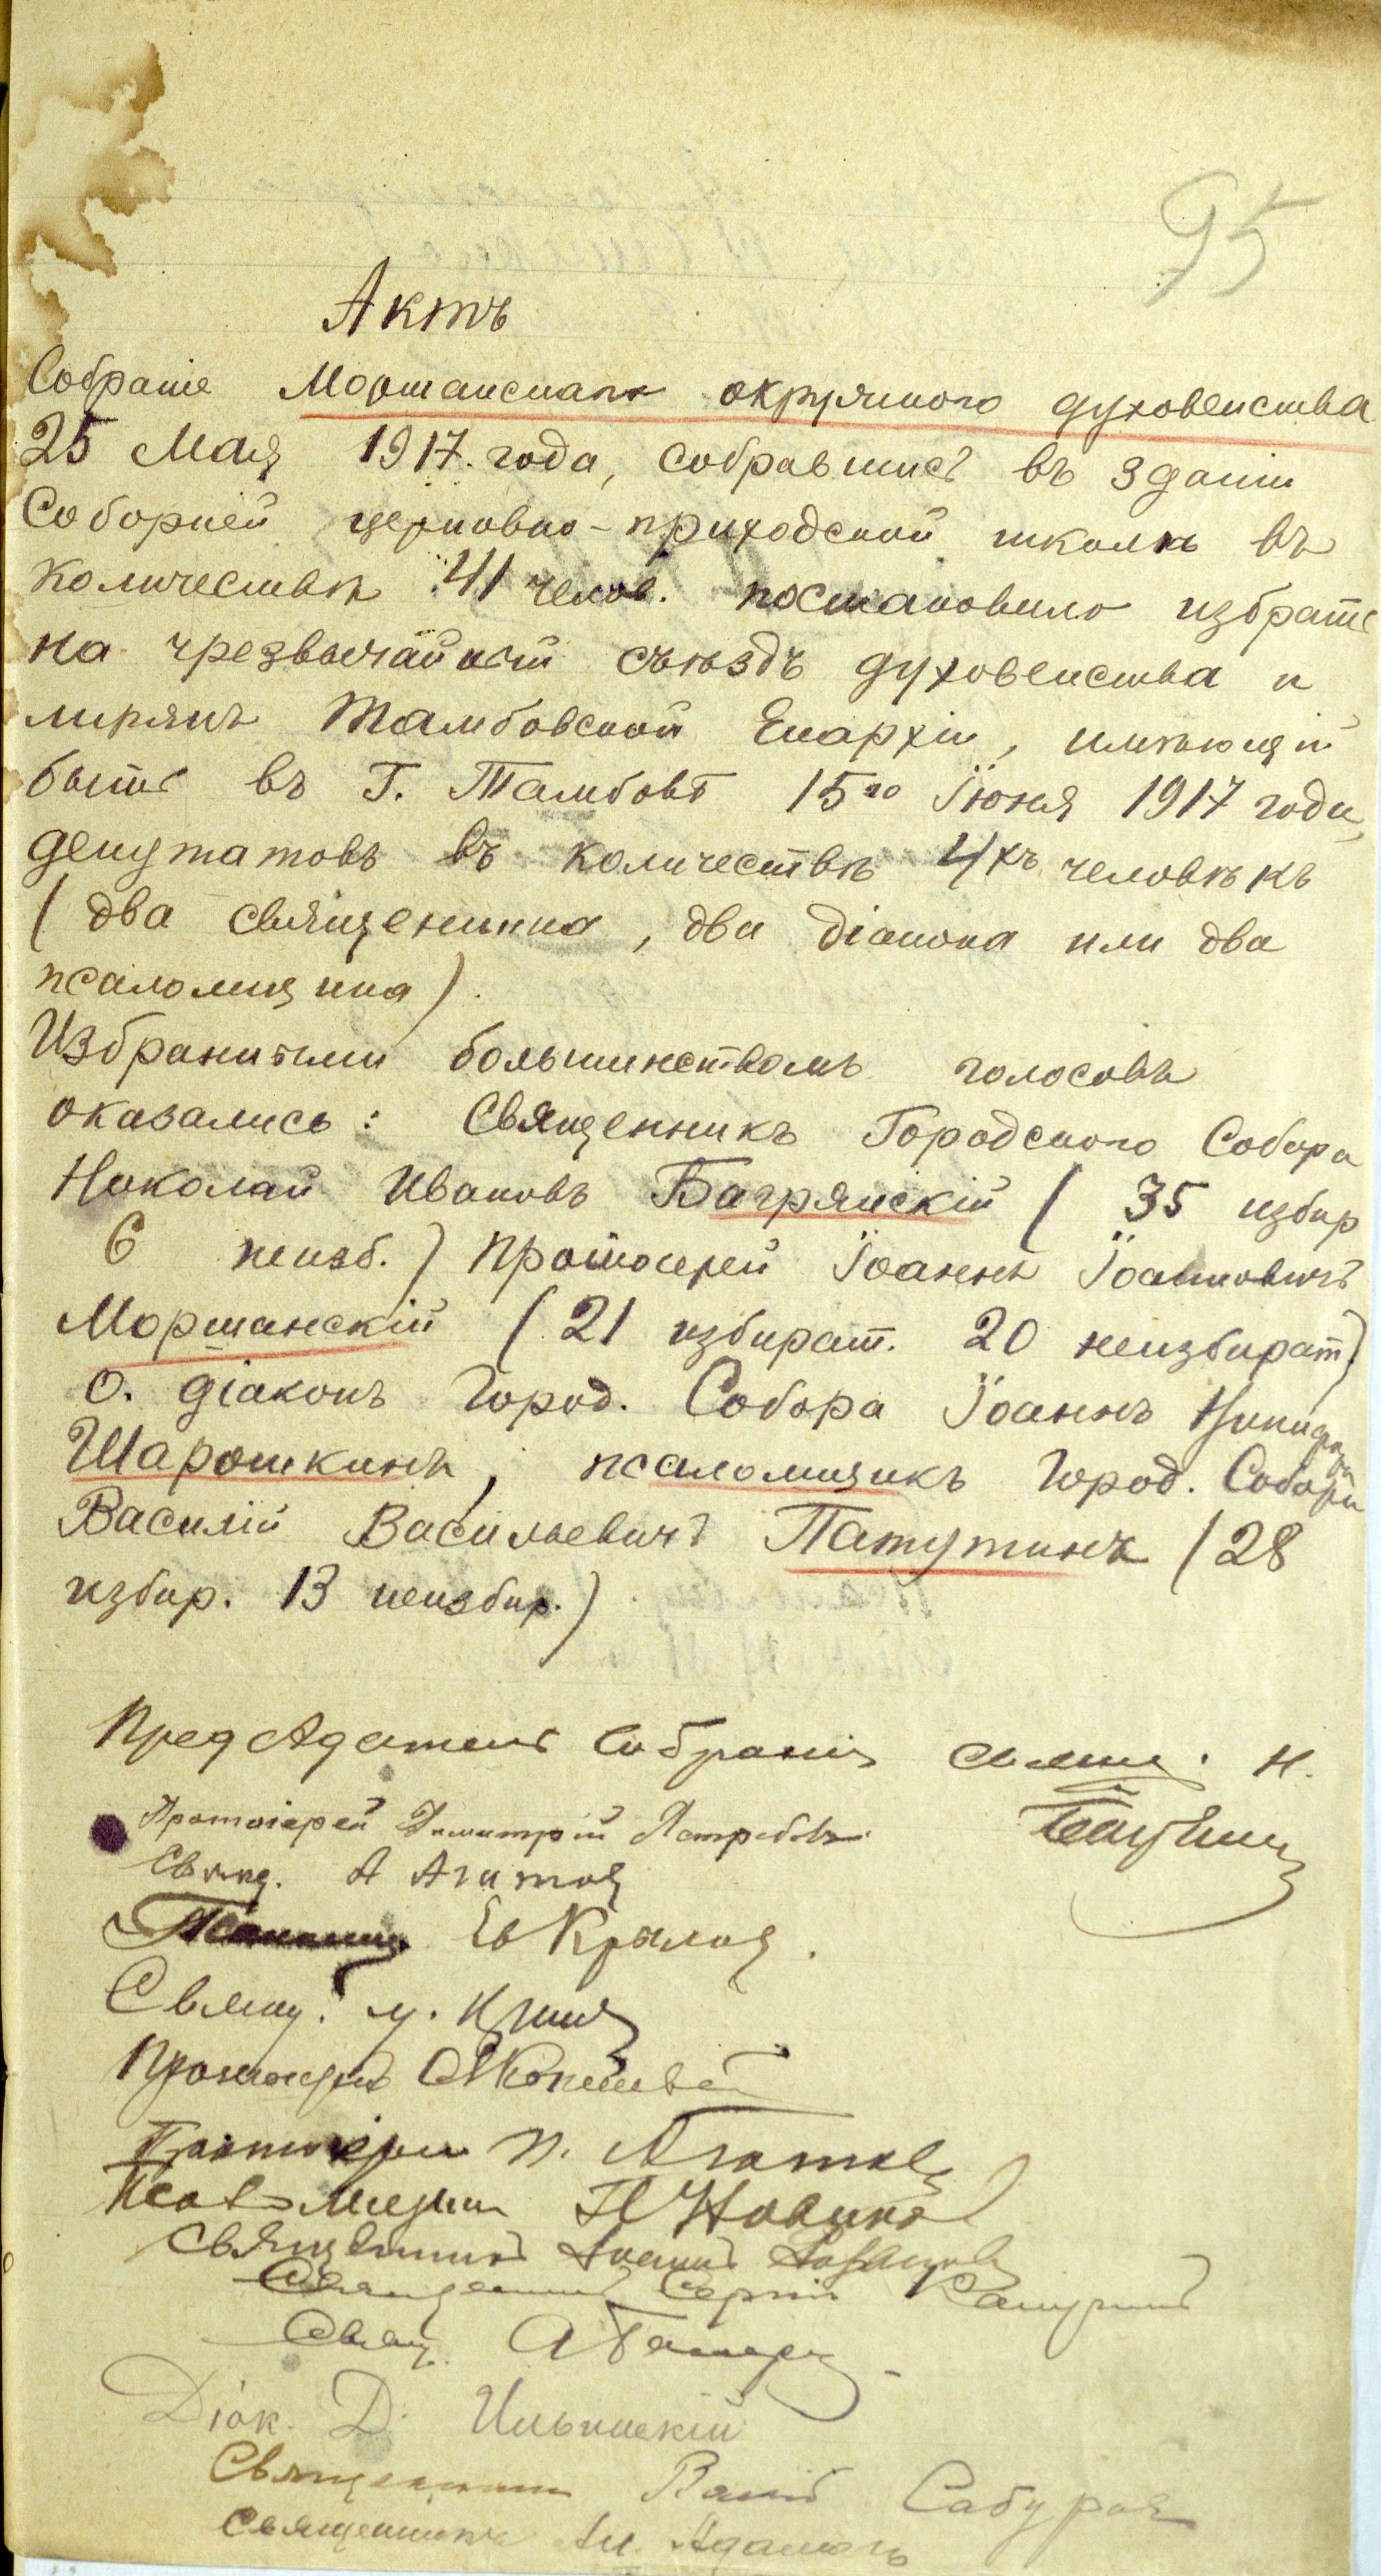 95
Актъ
Собраніе Моршанскаго окружного духовенства
25 Мая 1917 года, собравшись въ зданіи
Соборной церковно-приходской школѣ въ
количествѣ 41 челов. постановило избрать
на чрезвычайный съѣздъ духовенства и
мирянъ Тамбовской Епархіи, имѣющій
быть въ г. Тамбовѣ 15го Іюня 1917 года,
депутатовъ въ количествѣ 4хъ человѣкъ
(два священника, два діакона или два
псаломщика).
Избранными большинствомъ голосовъ
оказались: Священникъ Городского Собора
Николай Ивановъ Багрянскій (35 избир
6 неизб.) Протоіерей Іоаннъ Іоанновичъ
Моршанскій (21 избират. 20 неизбират.)
О. діаконъ Город. Собора Іоаннъ
Шарошкинъ, псаломщикъ Город. Собора
Василій Васильевичъ Патутинъ (28
избир. 13 неизбир.)
Предсѣдатель Собранія Свящ. Н.
Протоіерей Димитрій Ястребовъ
Свящ. А Агатов
Крылов.
Свящ.
Протоіерей
Протоіерей П. Агатов
Псаломщик Новиков
Священникъ Іоаннъ
Священникъ Сергій
Свящ. А
Діак. Д. Ильинскій
Священник Сабуров
Священникъ Адамовъ